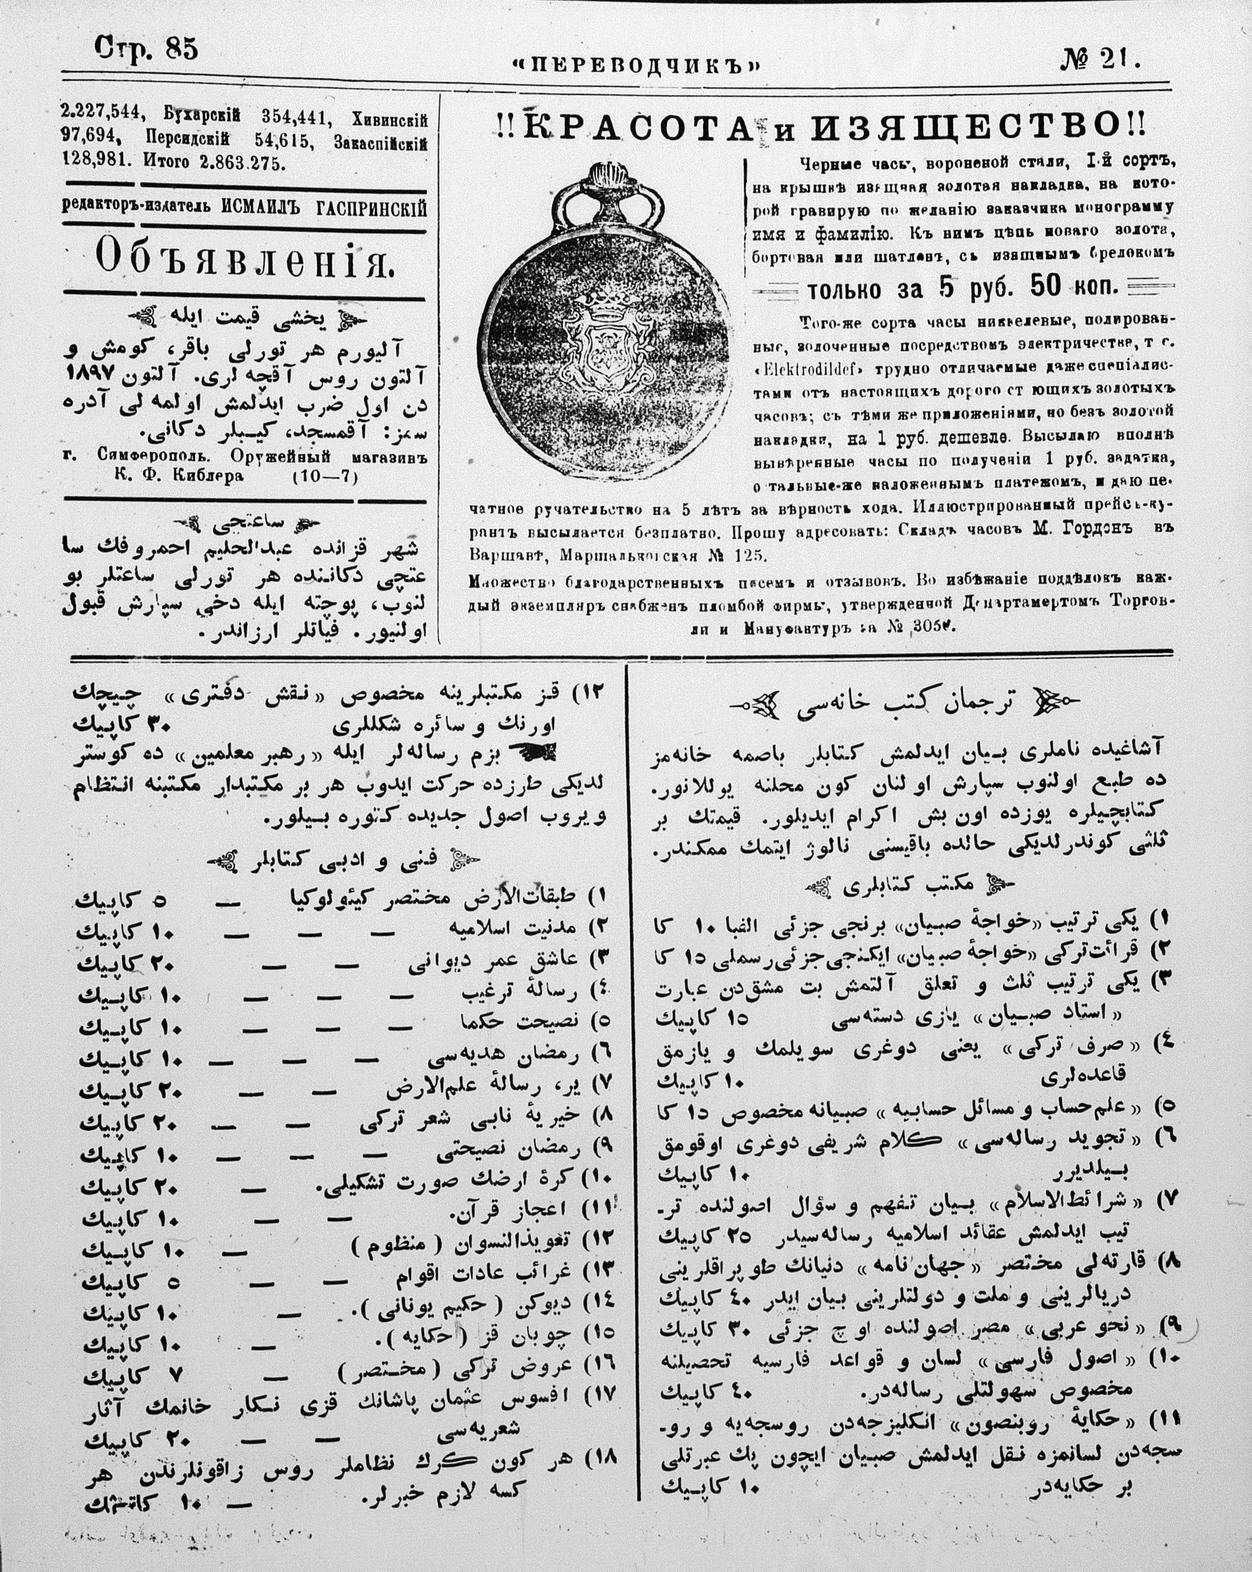 Стр. 85
«ПЕРЕВОДЧИКЪ»
№ 21.
2.227,544, Бухарскій 354,441, Хивинскій
97,694, Персидскій 54,615, Закаспійскій
128,981. Итого 2.863.275.
редакторъ-издатель ИСМАИЛЪ ГАСПРИНСКІЙ
Объявленія.
يخشی قيمت ايله
آليورم هر تورلی باقر، كومش و
آلتون روس آقچه‌لری. آلتون ١٨٩٧
دن اول ضرب ايدلمش اولمه‌لی آدره
سمز: آقمسجد، كيبلر دكانی.
г. Симферополь. Оружейный магазинъ
К. Ф. Киблера (10—7)
ساعتچی
شهر قزانده عبدالحليم احمروفك سا
عتچی دكاننده هر تورلی ساعتلر بو
لنوب، پوچته ايله دخی سپارش قبول
اولنيور. فياتلر ارزاندر.
!!КРАСОТА и ИЗЯЩЕСТВО!!
Черные часы, вороненой стали, 1-й сортъ,
на крышкѣ изящная золотая накладка, на кото-
рой гравирую по желанію заказчика монограмму
имя и фамилію. Къ нимъ цѣпь новаго золота,
бортовая или шатленъ, съ изящнымъ брелокомъ
только за 5 руб. 50 коп.
Того-же сорта часы никкелевые, полирован-
ные, золоченные посредствомъ электричества, т с.
«Elektrodildef» трудно отличаемые даже спеціалис-
тами отъ настоящихъ дорого ст ющихъ золотыхъ
часовъ; съ тѣми же приложеніями, но безъ золотой
накладки, на 1 руб. дешевле. Высылаю вполнѣ
вывѣренные часы по полученіи 1 руб. задатка,
о тальные-же наложеннымъ платежомъ, и даю пе-
чатное ручательство на 5 лѣтъ за вѣрность хода. Иллюстрированный прейсъ-ку-
рантъ высылается безплатно. Прошу адресовать: Складъ часовъ М. Гордонъ въ
Варшавѣ, Маршальковская № 125.
Множество благодарственныхъ писемъ и отзывовъ. Во избѣжаніе поддѣлокъ каж-
дый экземпляръ снабженъ пломбой фирмы, утвержденной Департаментомъ Торгов-
ли и Мануфактуръ за №
ترجمان كتب خانه‌سی
آشاغيده ناملری بيان ايدلمش كتابلر باصمه خانه‌مز
ده طبع اولنوب سپارش اولنان كون محلنه يوللانور.
كتابچيلره يوزده اون بش اكرام ايديلور. قيمتك بر
ثلثی كوندرلديكی حالده باقيسنی نالوژ ايتمك ممكندر.
مكتب كتابلری
١) يكی ترتيب «خواجۀ صبيان» برنجی جزئی الفبا ١٠ كا
٢) قرائت تركی «خواجۀ صبيان» ايكنجی جزئی رسملی ١٥ كا
٣) يكی ترتيب ثلث و تعلق آلتمش بت مشق‌دن عبارت
«استاد صبيان» يازی دسته‌سی ١٥ كاپيك
٤) «صرف تركی» يعنی دوغری سويلمك و يازمق
قاعده‌لری ١٠ كاپيك
٥) «علم حساب و مسائل حسابيه» صبيانه مخصوص ١٥ كا
٦) «تجويد رساله‌سی» كلام شريفی دوغری اوقومق
بيلديرر ١٠ كاپيك
٧) «شرائط الاسلام» بيان تفهم و سؤال اصولنده تر-
تيب ايدلمش عقائد اسلاميه رساله‌سيدر ٢٥ كاپيك
٨) قارته‌لی مختصر «جهان نامه» دنيانك طوپراقلرينی
دريالرينی و ملت و دولتلرينی بيان ايدر ٤٠ كاپيك
٩) «نحو عربی» مصر اصولنده اوچ جزئی ٣٠ كاپيك
١٠) «اصول فارسی» لسان و قواعد فارسيه تحصيلنه
مخصوص سهولتلی رساله‌در. ٤٠ كاپيك
١١) «حكايۀ روبنصون» انكليزجه‌دن روسجه‌يه و رو-
سجه‌دن لسانمزه نقل ايدلمش صبيان ايچون پك عبرتلی
بر حكايه‌در ١٠ كاپيك
١٢) قز مكتبلرينه مخصوص «نقش دفتری» چيچك
اورنك و سائره شكللری ٣٠ كاپيك
بزم رساله‌لر ايله «رهبر معلمين» ده كوستر
لديكی طرزده حركت ايدوب هر بر مكتبدار مكتبنه انتظام
ويروب اصول جديده كتوره بيلور.
فنی و ادبی كتابلر
١) طبقات‌الارض مختصر كيئولوكيا — ٥ كاپيك
٢) مدنيت اسلاميه — — — ١٠ كاپيك
٣) عاشق عمر ديوانی — — ٢٠ كاپيك
٤) رسالۀ ترغيب — — — ١٠ كاپيك
٥) نصيحت حكما — — — ١٠ كاپيك
٦) رمضان هديه‌سی — — — ١٠ كاپيك
٧) ير، رسالۀ علم‌الارض — — ٢٠ كاپيك
٨) خيريۀ نابی شعر تركی — — ٢٠ كاپيك
٩) رمضان نصيحتی — — — ١٠ كاپيك
١٠) كرۀ ارضك صورت تشكيلی. — ٢٠ كاپيك
١١) اعجاز قرآن. — — ١٠ كاپيك
١٢) تعويذالنسوان (منظوم) — ١٠ كاپيك
١٣) غرائب عادات اقوام — — ٥ كاپيك
١٤) ديوكن (حكيم يونانی). — ١٠ كاپيك
١٥) چوبان قز (حكايه). — ١٠ كاپيك
١٦) عروض تركی (مختصر) — ٧ كاپيك
١٧) افسوس عثمان پاشانك قزی نكار خانمك آثار
شعريه‌سی — — ٢٠ كاپيك
١٨) هر كون كرك نظاملر روس زاقونلرندن هر
كسه لازم خبرلر. — ١٠ كاپيك